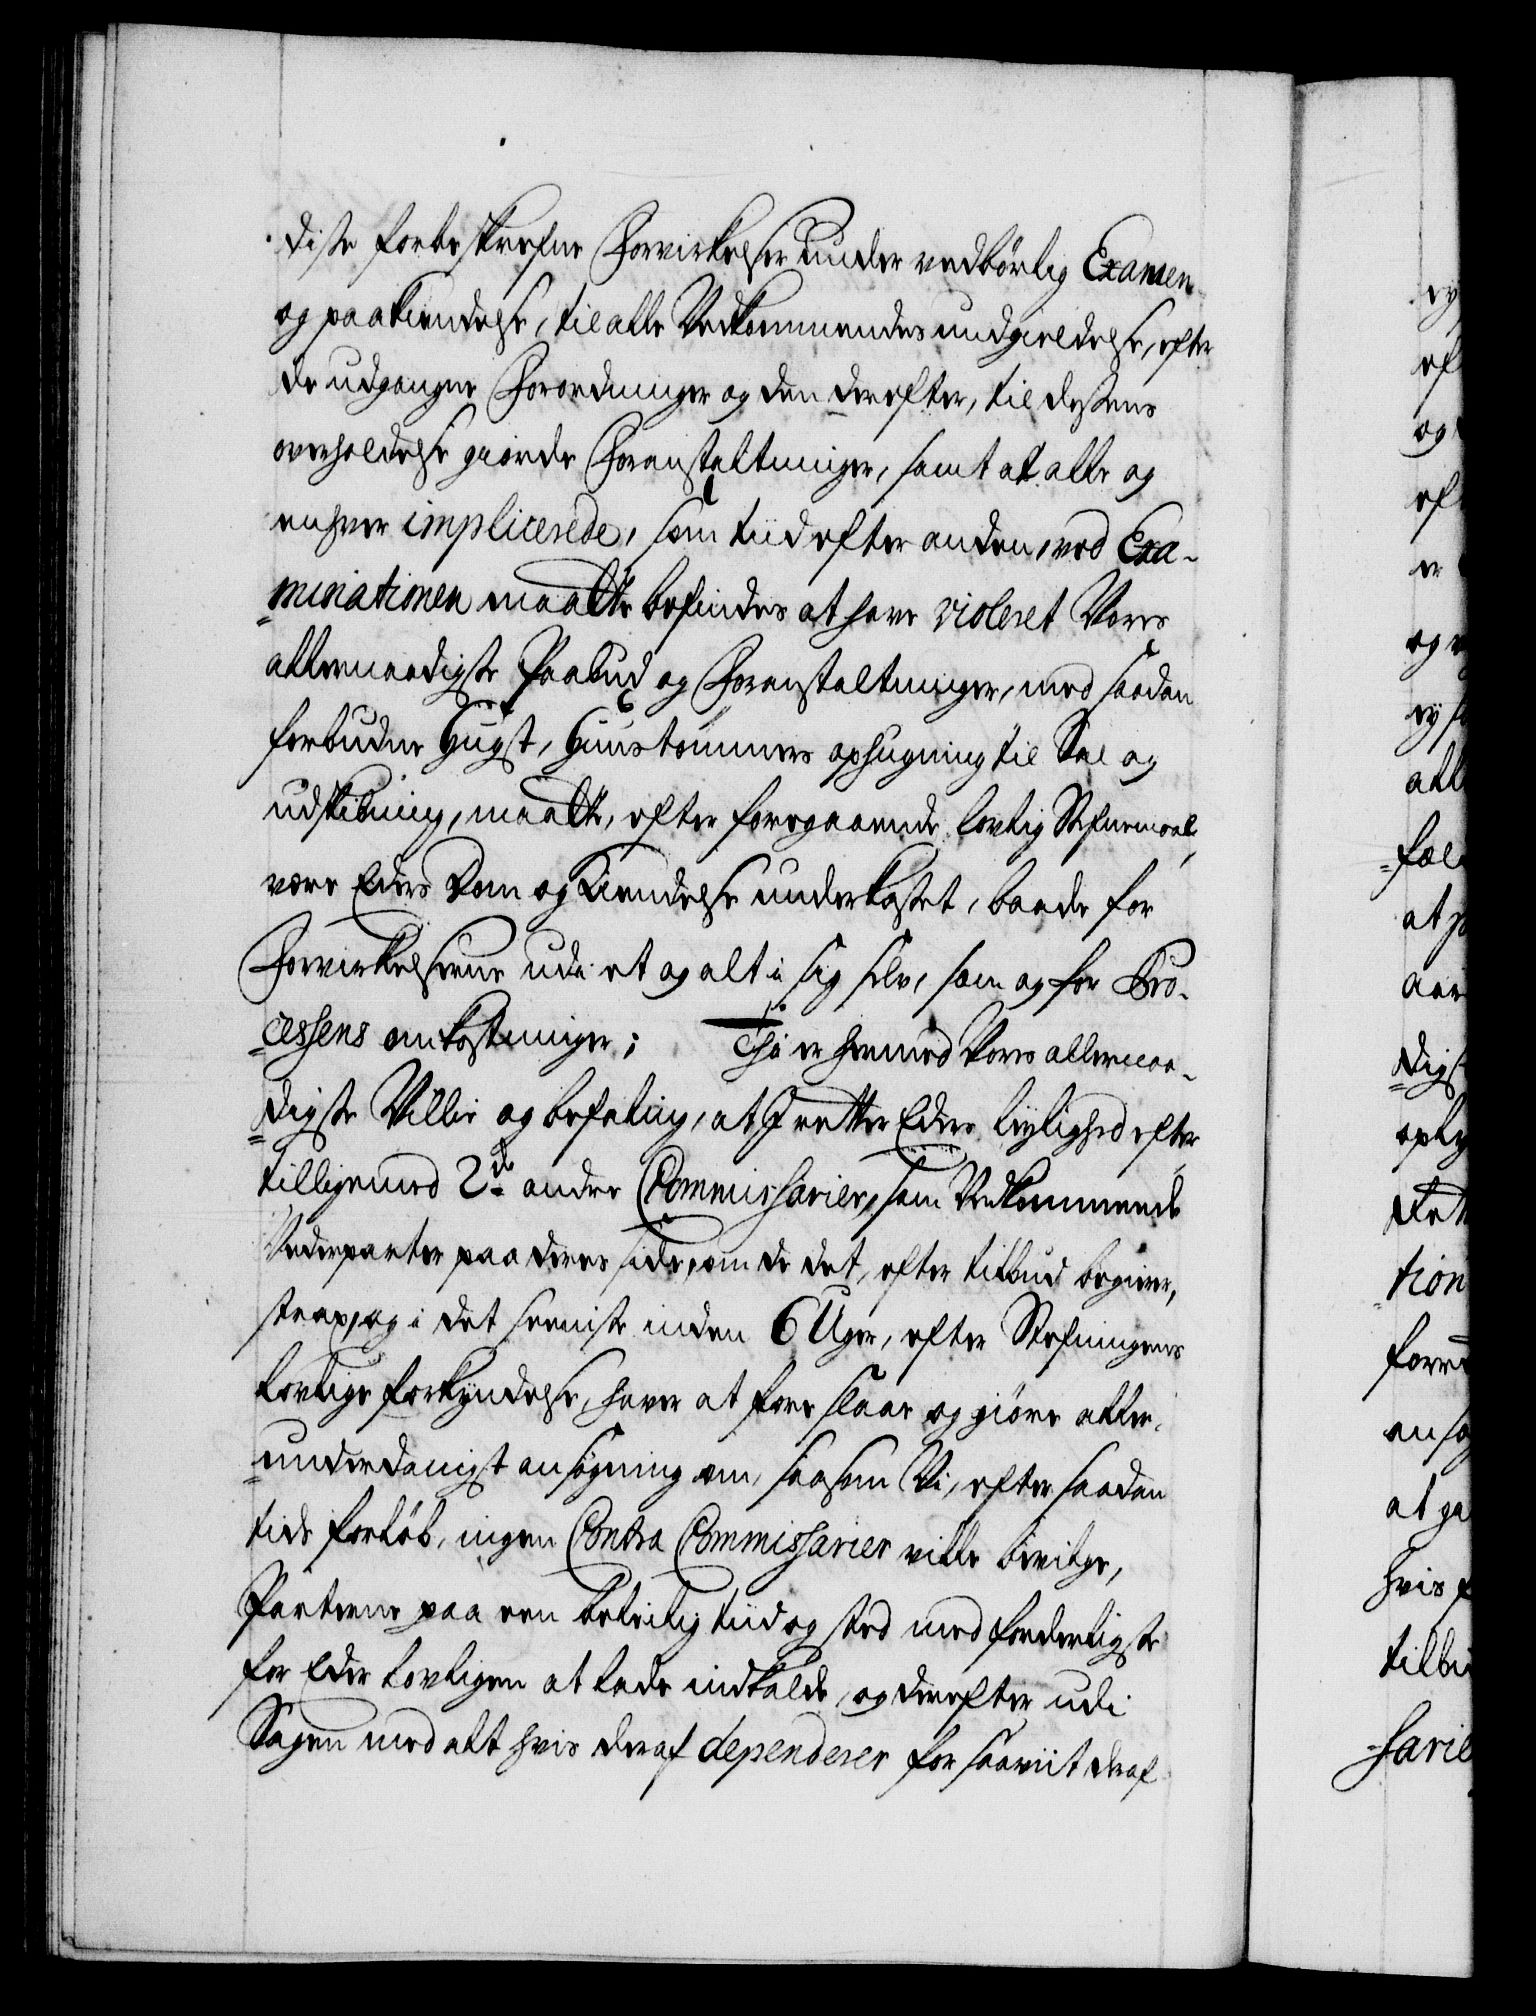 diste forbeskrefne Forvirkelser under vedbörlig Examen
og paakiendelse, til alle Vedkommendes undgieldelse, efter
de udgangne Forordninger og den derefter, til dessens
overholdelse giorde Foranstaltninger, samt at alle og
enhver implicerede, som tiid efter anden, ved Exa-
minationen maatte befindes at have violeret Vores
allernaadigste Paabud og Foranstaltninger, med saadan
forbuden Hugst, Huustömmers ophugning til Sal og
udskibning, maatte, efter foregaaende lovlig Stefnemaal,
være Eders Dom og Kiendelse underkastet, baade for
Forvirkelserne udi et og alt i sig selv, som og for Pro-
cessens omkostninger; Thi er hermed Vores allernaa-
digste Villie og befaling, at I retter Eders leylighed efter,
tilligemed 2de andre Commissarier, som Vedkommende
Vederparter paa deres side, om de det, efter tilbud begierer,
strax, og i det seeniste inden 6 Uger, efter Stefningens
lovlige forkyndelse, haver at foreslaae og giöre aller-
underdanigst ansögning om, saasom Vi, efter saadan
tids forlöb, ingen Contra Commissarier ville bevilge,
Parterne paa een beleilig tiid og sted med forderligste
for Eder lovligen at lade indkalde, og derefter udi
Sagen med alt hvis deraf dependerer for saaviit deraf